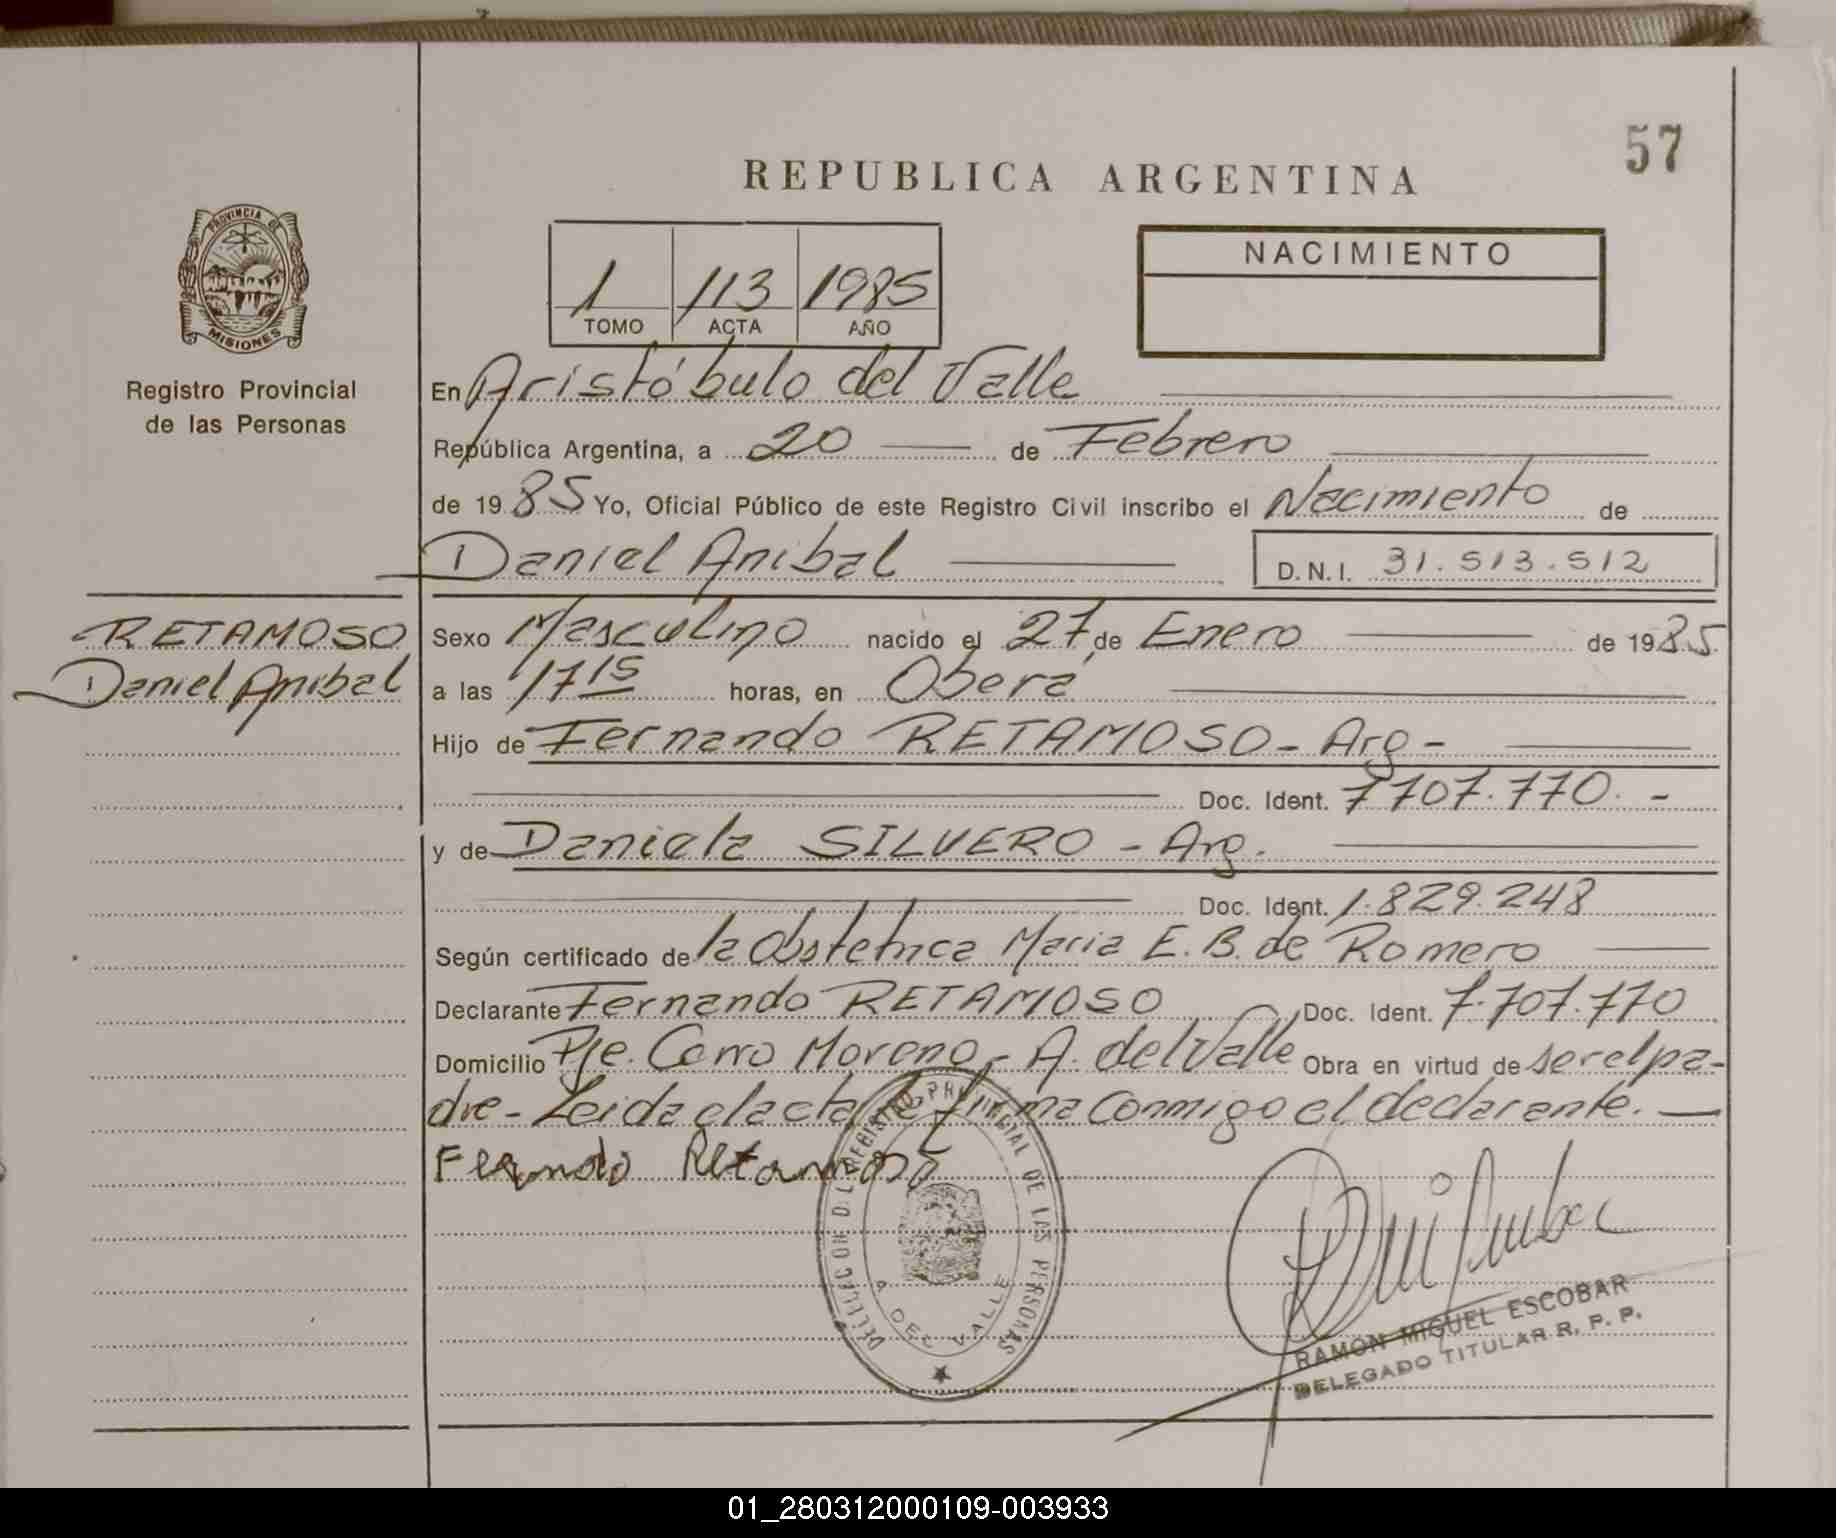 57
REPUBLICA ARGENTINA
PROVINCIA DE
MISIONES
Registro Provincial
de las Personas
1 113 1985
TOMO ACTA AÑO
NACIMIENTO
En Aristóbulo del Valle
República Argentina, a 20 de Febrero
de 1985 Yo, Oficial Público de este Registro Civil inscribo el Nacimiento de
Daniel Anibal D.N.I. 31.513.512
RETAMOSO
Daniel Anibal
Sexo Masculino nacido el 27 de Enero de 1985
a las 17 15 horas, en Oberá
Hijo de Fernando RETAMOSO - Arg -
Doc. Ident. 7707.770. -
y de Daniela SILVERO - Arg.
Doc. Ident. 1.829.248
Según certificado de la Obstetrica Maria E. B. de Romero
Declarante Fernando RETAMOSO Doc. Ident. 7.707.770
Domicilio Pje. Cerro Moreno - A. del Valle Obra en virtud de ser el pa-
dre - Leida el acta la firma conmigo el declarante. -
Fernando Retamoso
DELEGACION DEL REGISTRO PROVINCIAL DE LAS PERSONAS
A. DEL VALLE
RAMON MIGUEL ESCOBAR
DELEGADO TITULAR R. P. P.
01_280312000109-003933